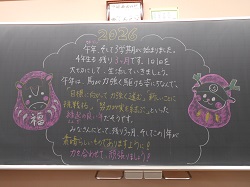 2026
午年、そして3学期が始まりました。
4年生も残り3ヶ月です。1日1日を
大切にして、生活していきましょう。
午年は、馬が力強く駆ける姿になんで、
「目標に向かって力強く進む」「新しいことに
挑戦する」「努力が実を結ぶ」といった
みなさんにとって、残り3ヶ月、そしてこの1年が
素晴らしいものでありますように!
力を合わせて、頑張りましょう!
福